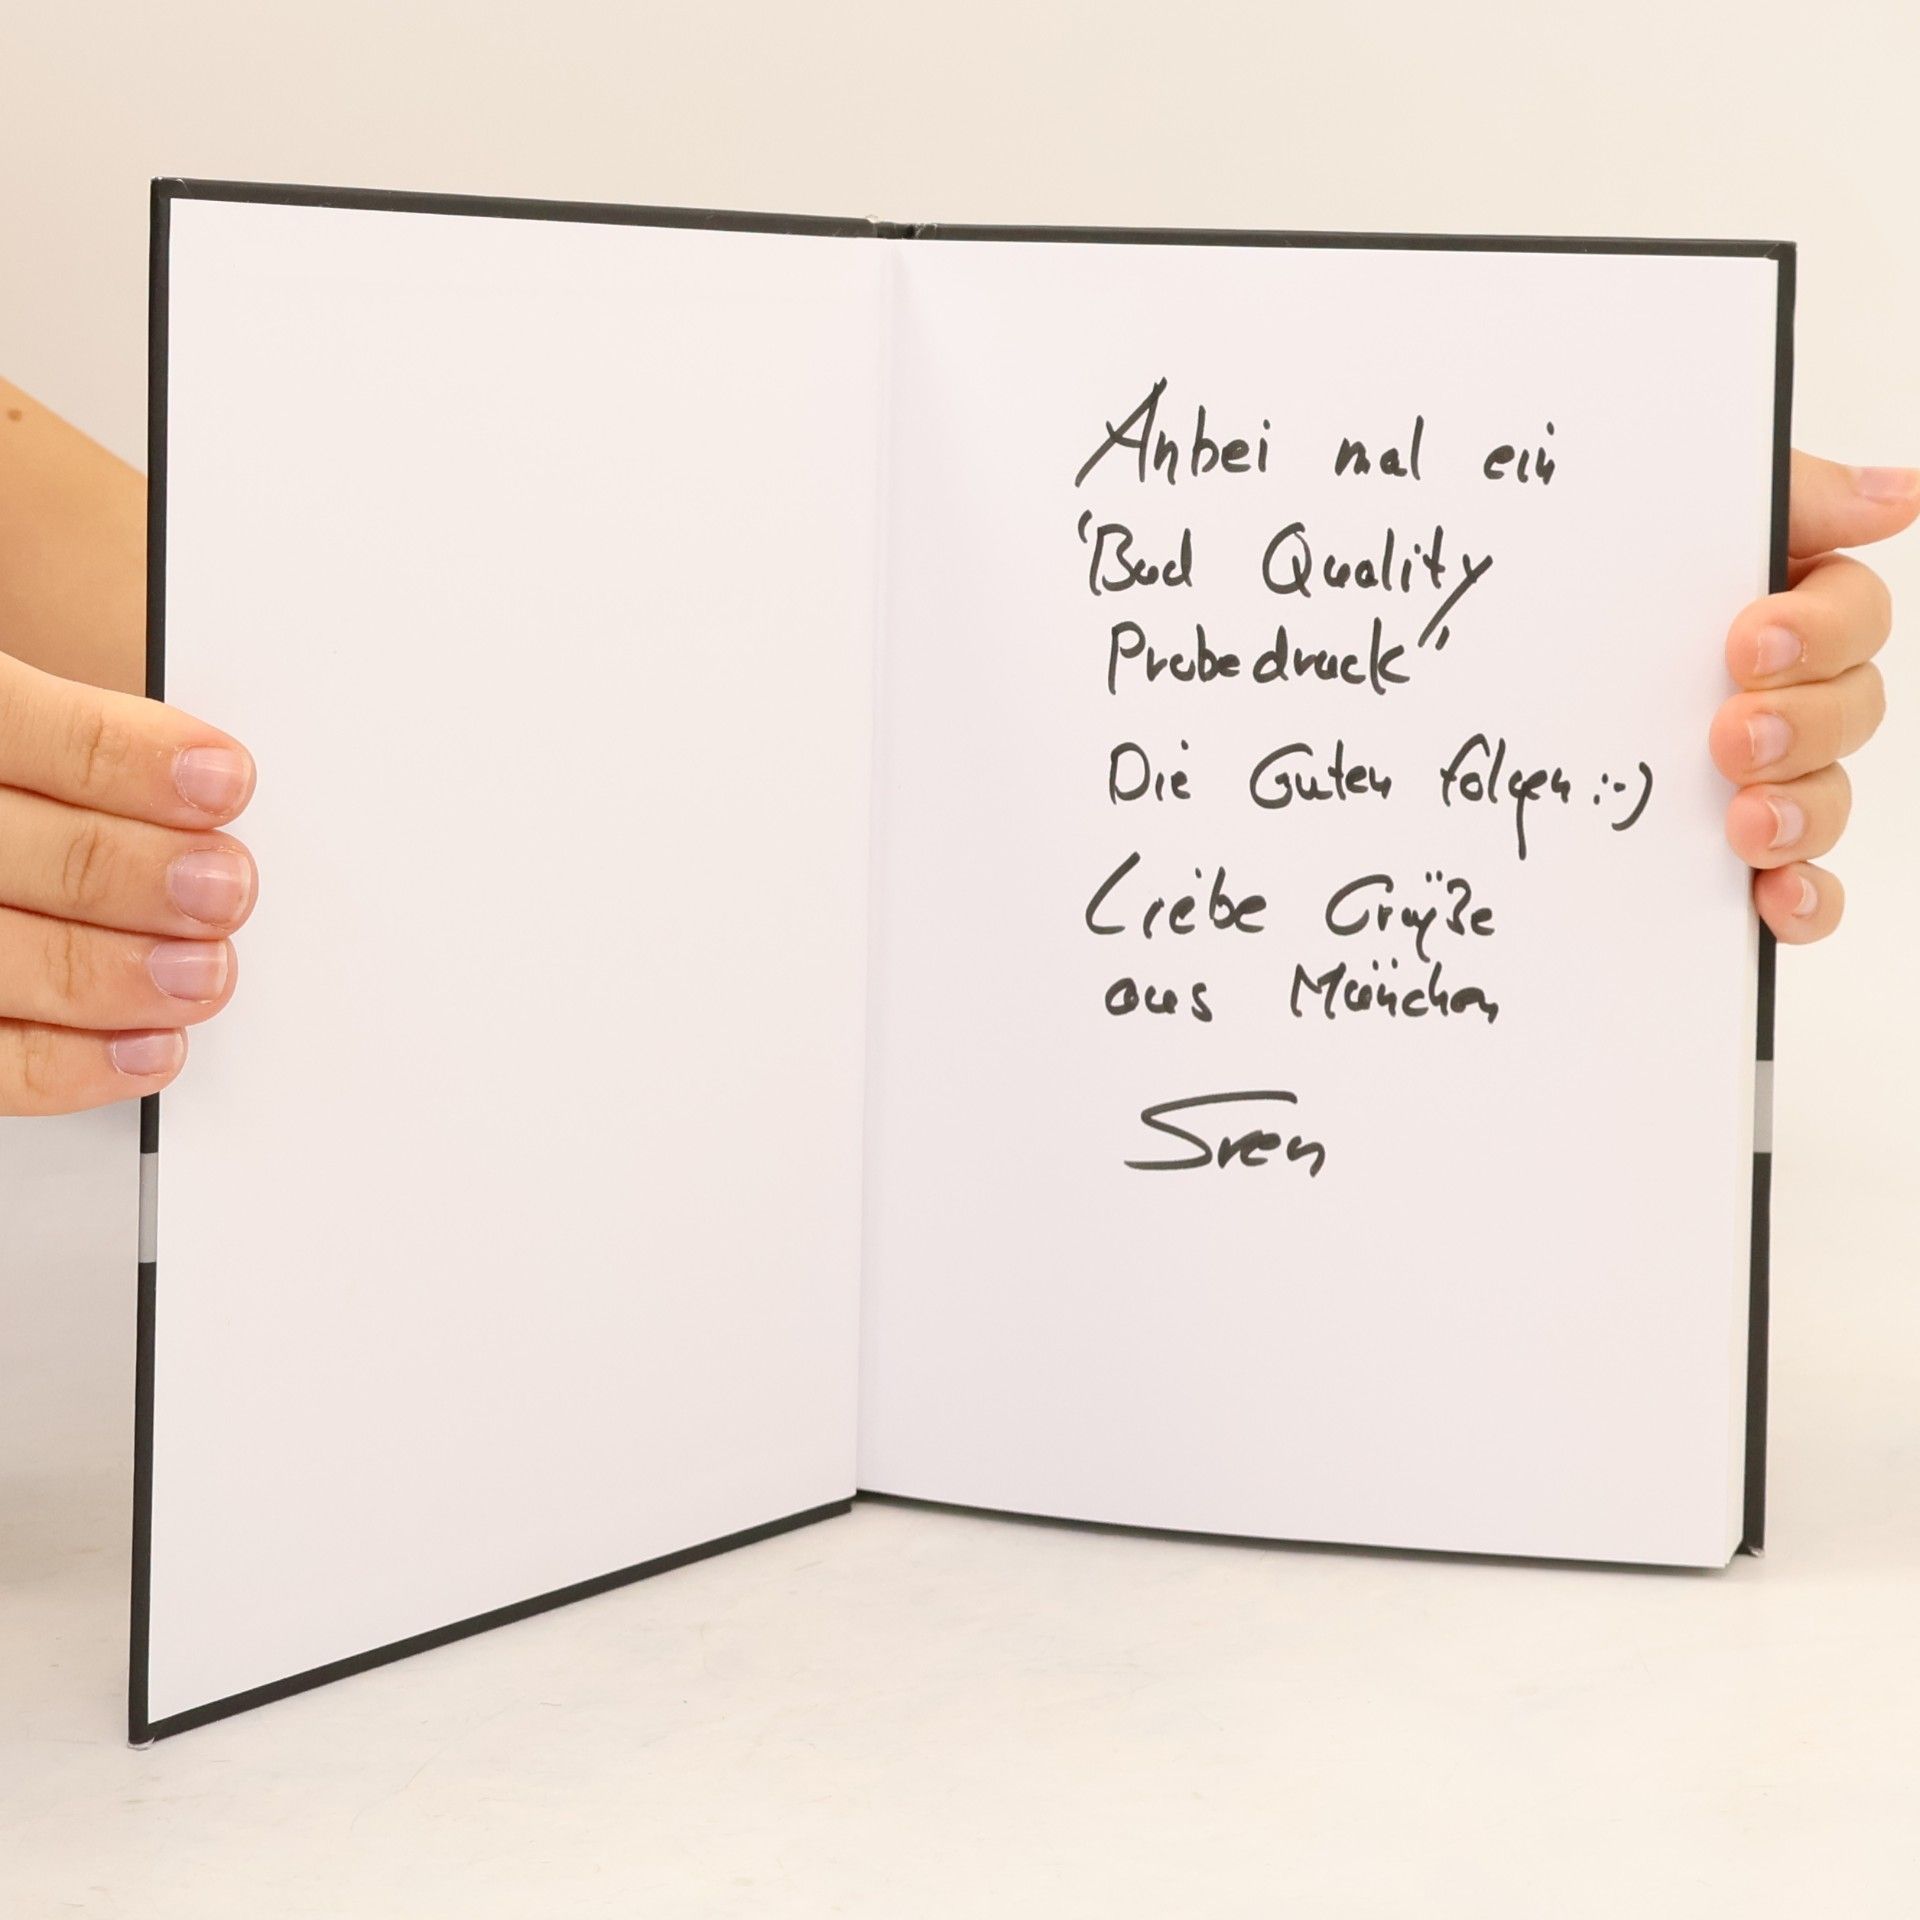 Anbei mal ein
"Bad Quality
Probedruck"
Die Guten folgen :-)
Liebe Grüße
aus München
Sven